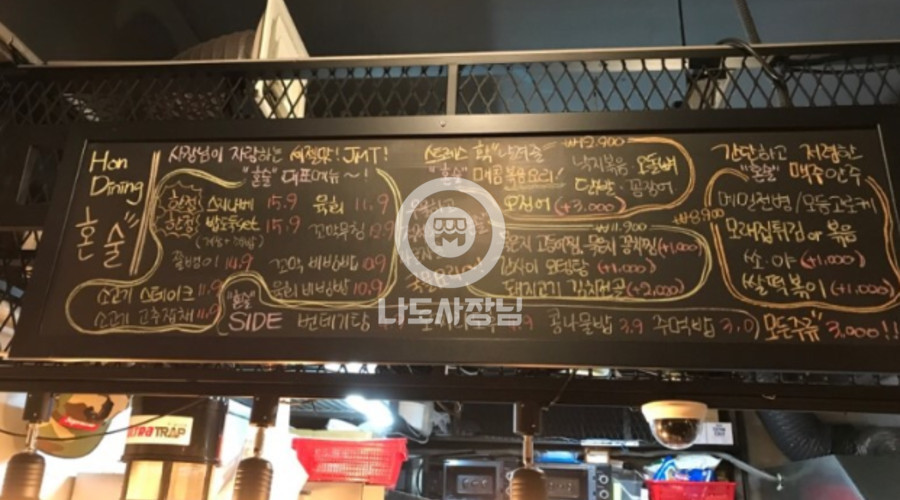 Hon
Dining
혼술
사장님이 자랑하는 서정맛! JMT!
"혼술" 대표메뉴 ~!
한정 스지나베 15.9 육회 11.9
한정 밥도둑set 15.9 꼬막무침
골뱅이 14.9 꼬막 비빔밥 10.9
소고기 스테이크 11.9 육회 비빔밥 10.9
소고기 고추잡채 11.9
"혼술" SIDE 번데기탕 콩나물밥 3.9 주먹밥 3.0 모든주류 3,000!!
스트레스 확 날려줄 ₩12.900
"혼술" 매콤 볶음요리! 낙지볶음 오돌뼈
닭발 꼼장어
오징어 (+3.000)
₩11.900
고등어찜, 꽁치찜 (+1.000)
오뎅탕 (+1.000)
돼지고기 김치전골 (+2.000)
간단하고 저렴한
"혼술" 맥주 안주
₩8.900
메밀전병/모듬고로케
모래집튀김 or 볶음
쏘.야 (+1.000)
쌀떡볶이 (+1.000)
나도사장님
TRAP